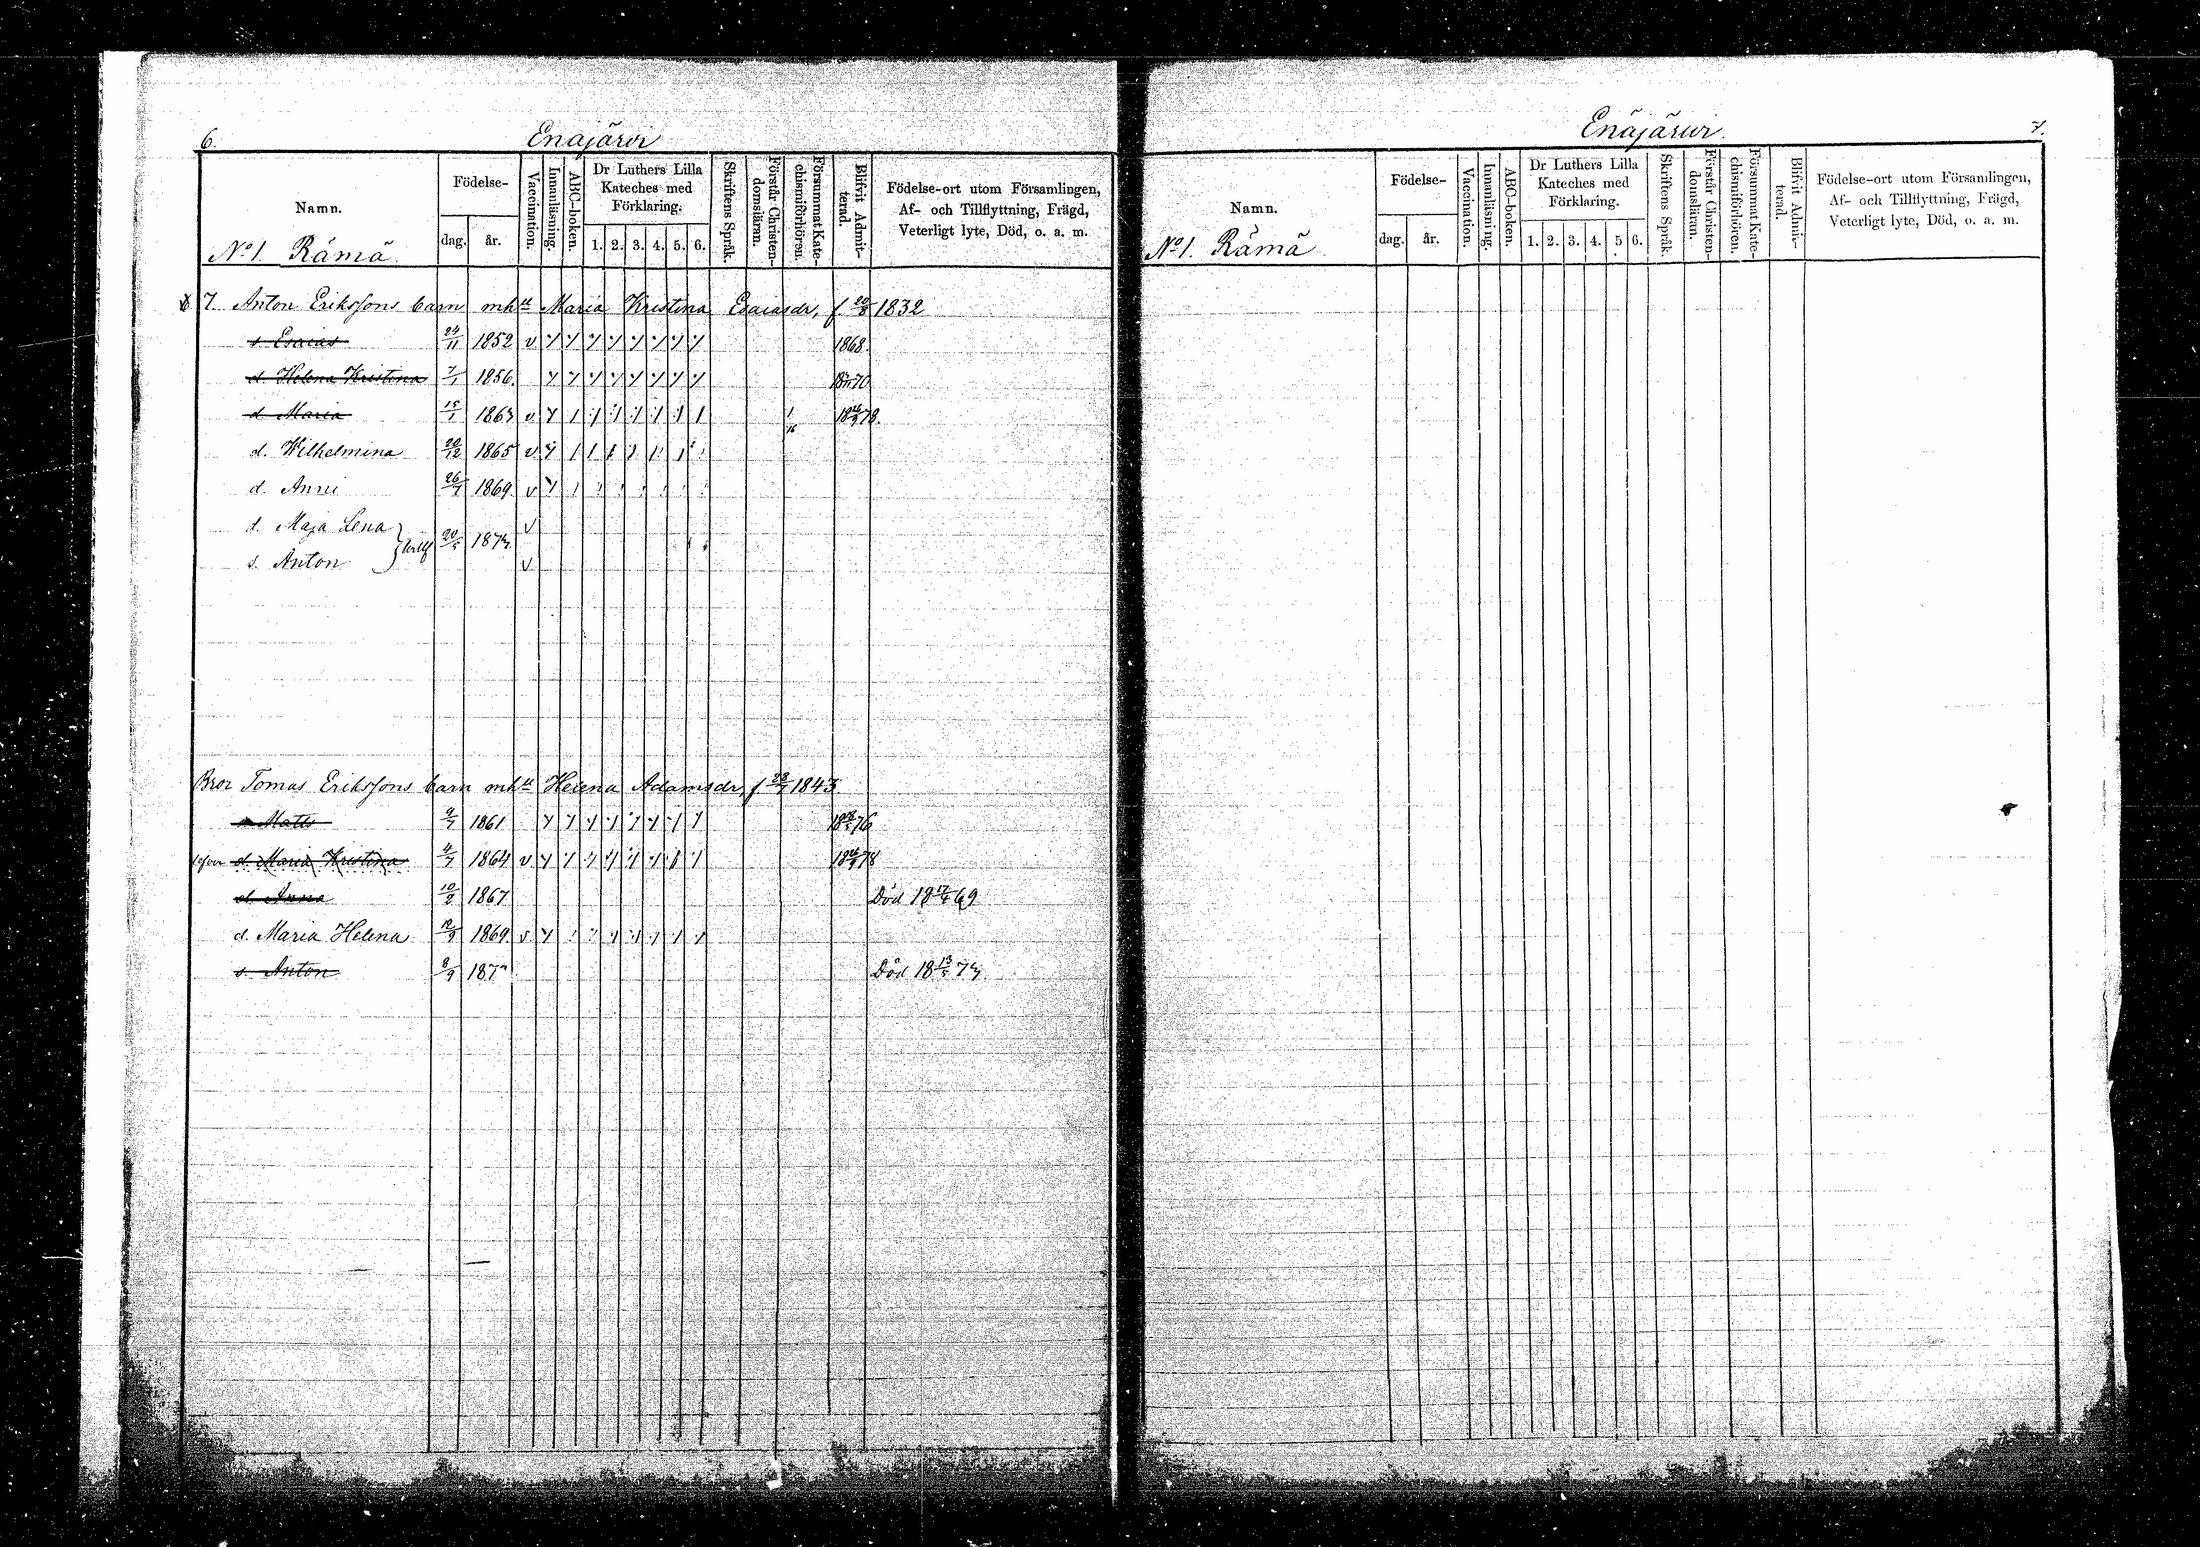 6. Enäjärvi
Namn. Födelse- dag. år. Vaccination. Innanläsning. ABC-boken. Dr Luthers Lilla Kateches med Förklaring. 1. 2. 3. 4. 5. 6. Skriftens Språk. Förstår Christendomsläran. Försummat Katechismiförhören. Blifvit Admitterad. Födelse-ort utom Församlingen, Af- och Tillflyttning, Frägd, Veterligt lyte, Död, o. a. m.
No 1. Rämä
7. Anton Erikssons barn mhu Maria Kristina Esaiasdr, f 20/8 1832
s Esaias 24/11 1852 v 1868.
d. Helena Kristina 7/1 1856. 1870
d. Maria 15/1 1863 v 1 1878.
16
d. Wilhelmina 20/12 1865 v
d. Anni 26/7 1869 v
d. Maja Lena v
20/5 1873.
s. Anton v
Bror Tomas Erikssons barn mhu Helena Adamsdr, f 28/7 1843
Matts 9/7 1861 1876
d. Maria Kristina 4/7 1864 v 1878
d. Anna 10/2 1867 Död 18 17/4 69
d. Maria Helena 12/9 1869 v
s. Anton 8/9 187 Död 18 13/5 73.
Enäjärvi. 7.
Namn. Födelse- dag. år. Vaccination. Innanläsning. ABC-boken. Dr Luthers Lilla Kateches med Förklaring. 1. 2. 3. 4. 5. 6. Skriftens Språk. Förstår Christendomsläran. Försummat Katechismiförhören. Blifvit Admitterad. Födelse-ort utom Församlingen, Af- och Tillflyttning, Frägd, Veterligt lyte, Död, o. a. m.
No 1. Rämä